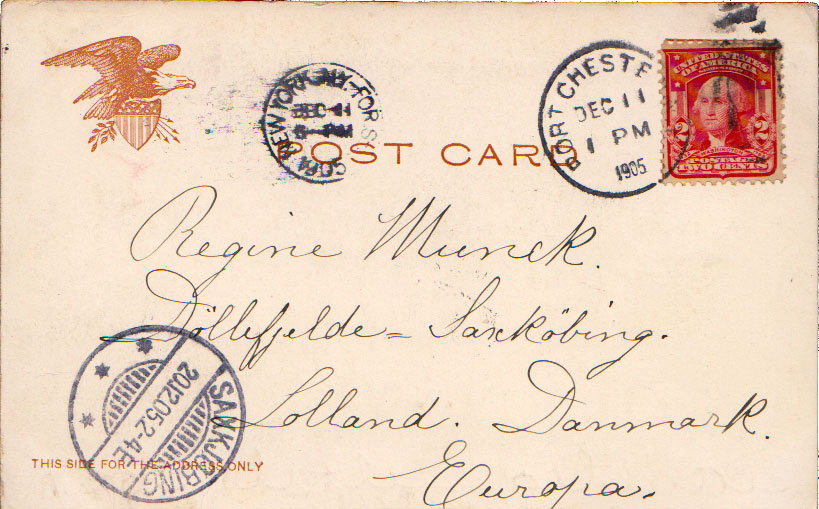 NEW YORK, N.Y.-FOR
DEC 11
PM
1905
PORT CHESTE
DEC 11
1 PM
1905
UNITED STATES
OF AMERICA
2 2
WASHINGTON
POSTAGE
TWO CENTS
POST CARD
Regine Munck.
Döllefjelde = Saxköbing.
Lolland. Danmark.
Europa.
SAXKJØBING
20.12.05.2-4E
THIS SIDE FOR THE ADDRESS ONLY